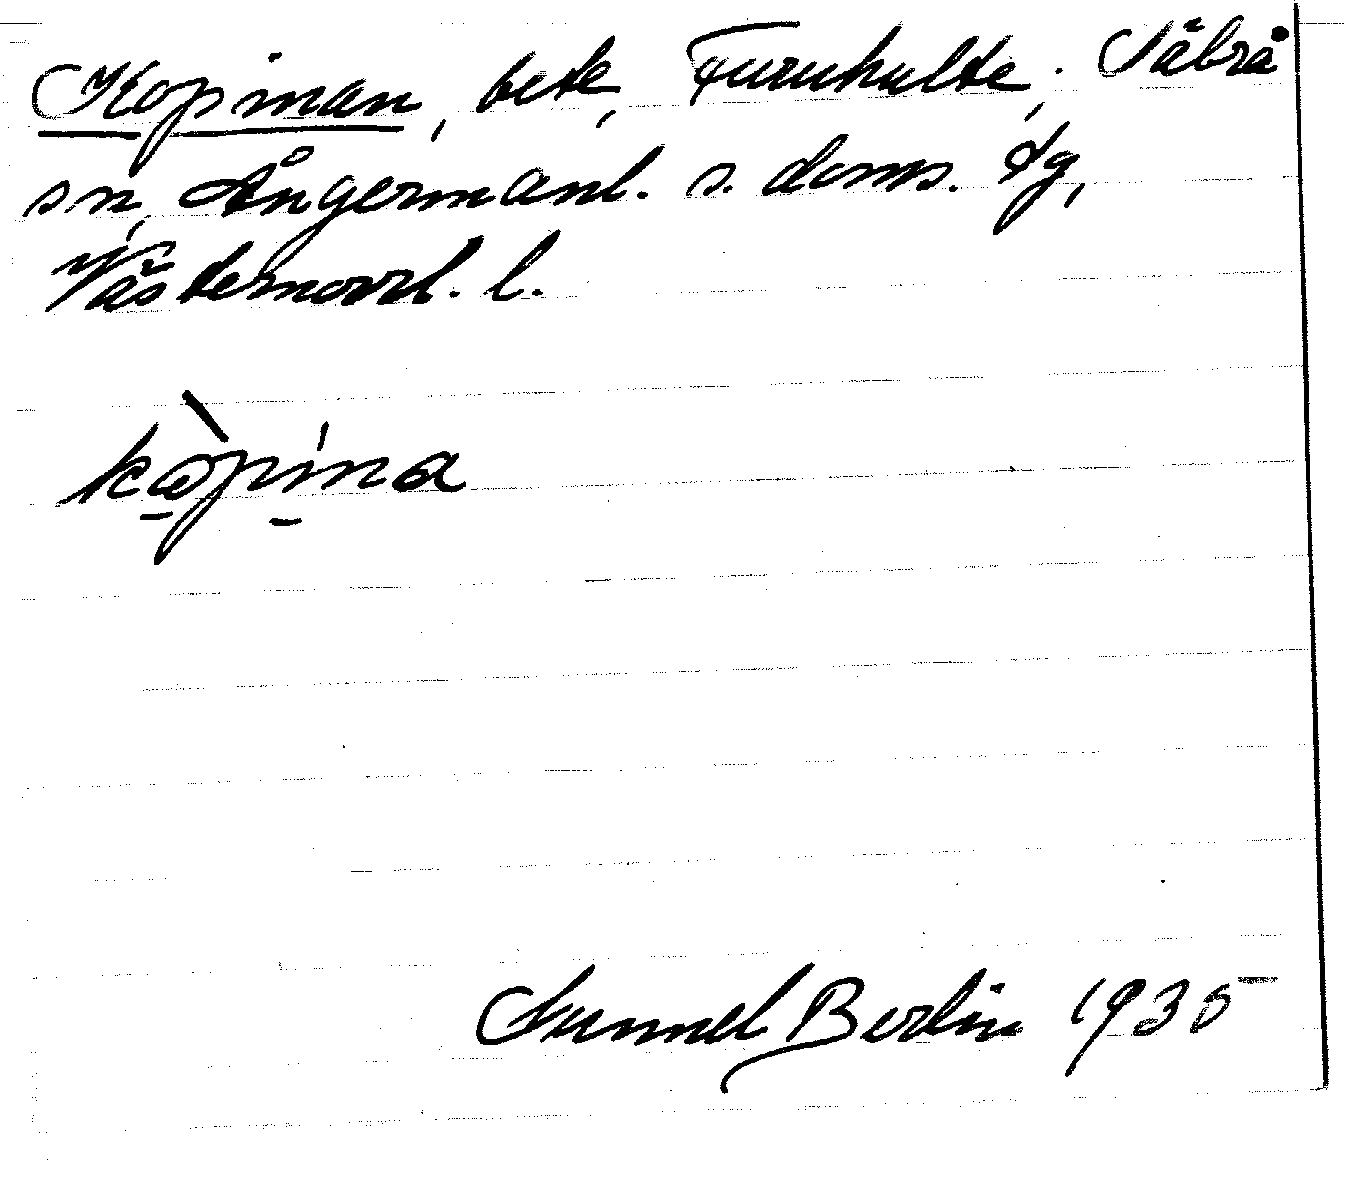 Kopinan, bete, Furuhulte, Säbrå
sn, Ångermanl. s. doms. tg,
Västernorrl. l.
kàpína
Gunnel Berlin 1935